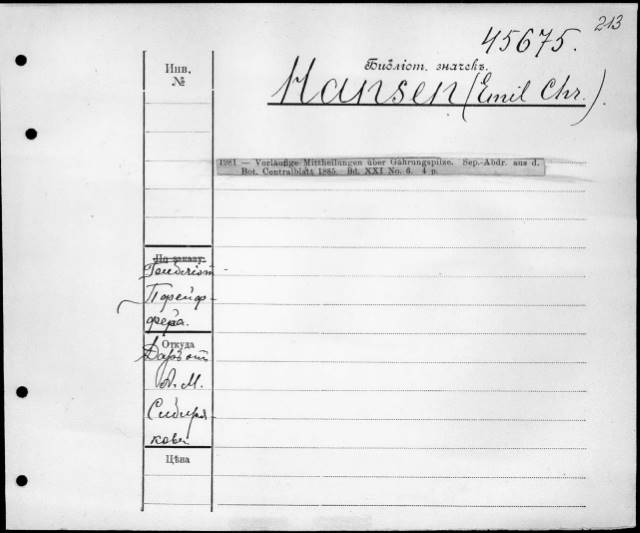 213
45675.
Библіот. значекъ.
Hansen (Emil Chr.)
Инв.
№
1281 — Vorläufige Mittheilungen über Gährungspilze. Sep.-Abdr. aus d.
Bot. Centralblatt 1885. Bd. XXI No. 6. 4 p.
По заказу
Пфейф-
фера.
Откуда
Даръ отъ
А. М.
Сибиря-
кова
Цѣна